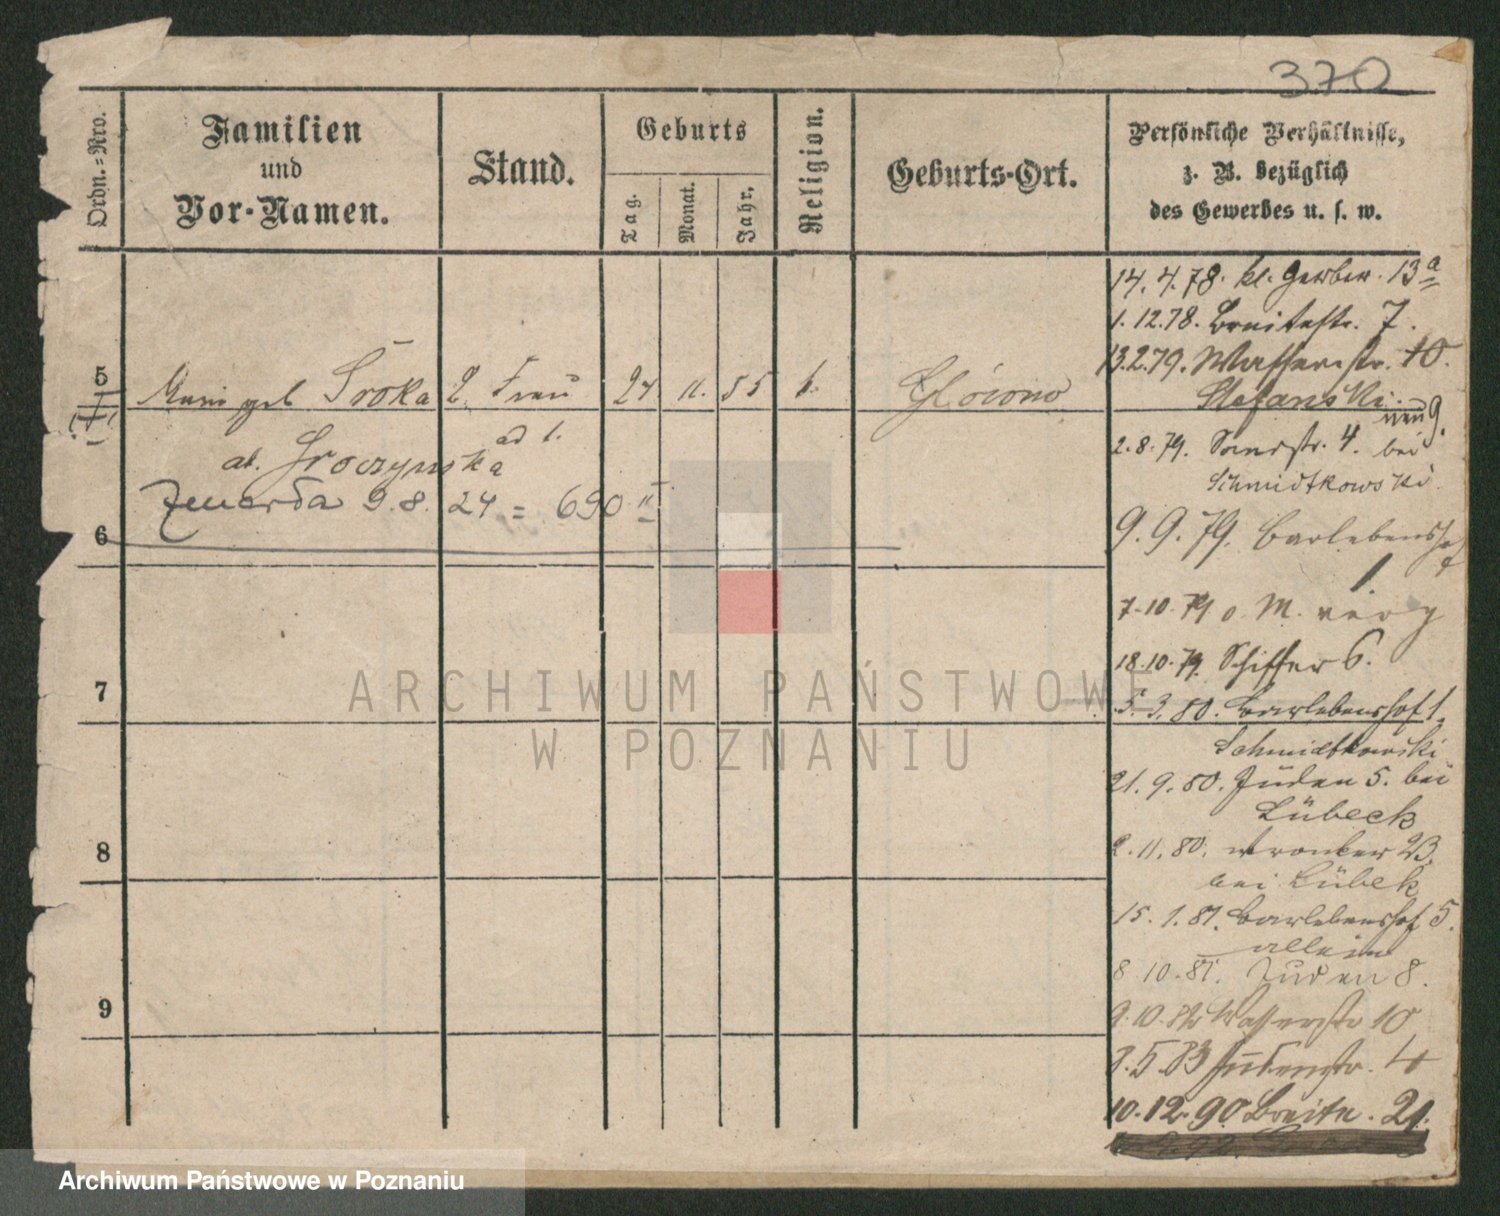 370
Ordn.=Nro.
Familien
und
Vor-Namen.
Stand.
Geburts
Tag.
Monat.
Jahr.
Religion.
Geburts-Ort.
Persönliche Verhältnisse,
z. B. bezüglich
des Gewerbes u. s. w.
14. 4. 78. kl. Gerber. 13a
1. 12. 78. Breitestr. 7.
13. 2. 79. Wasserstr. 10.
Stefanski.
5 geb Sroka 2. Frau 24 11. 55 k.
ad 1.
neu 9.
2. 8. 79. Sandstr. 4. bei
Schmidtkowski.
zmarła 9. 8. 24 = 690 II
6
9. 9. 79. Barlebenshof
1
7. 10. 79
18. 10. 79. Schiffer 6.
7
5. 3. 80. Barlebenshof 1.
Schmidtkowski
21. 9. 80. Juden 5. bei
Lübeck
8
2. 11. 80. Wronker 23.
bei Lübek
15. 1. 81. Barlebenshof 5.
allein
8. 10. 81. Juden 8.
9
9. 10. 82 Wasserstr 10
8. 5. 83 Judenstr. 4
10. 12. 90 Breite. 21.
ARCHIWUM PAŃSTWOWE
W POZNANIU
Archiwum Państwowe w Poznaniu